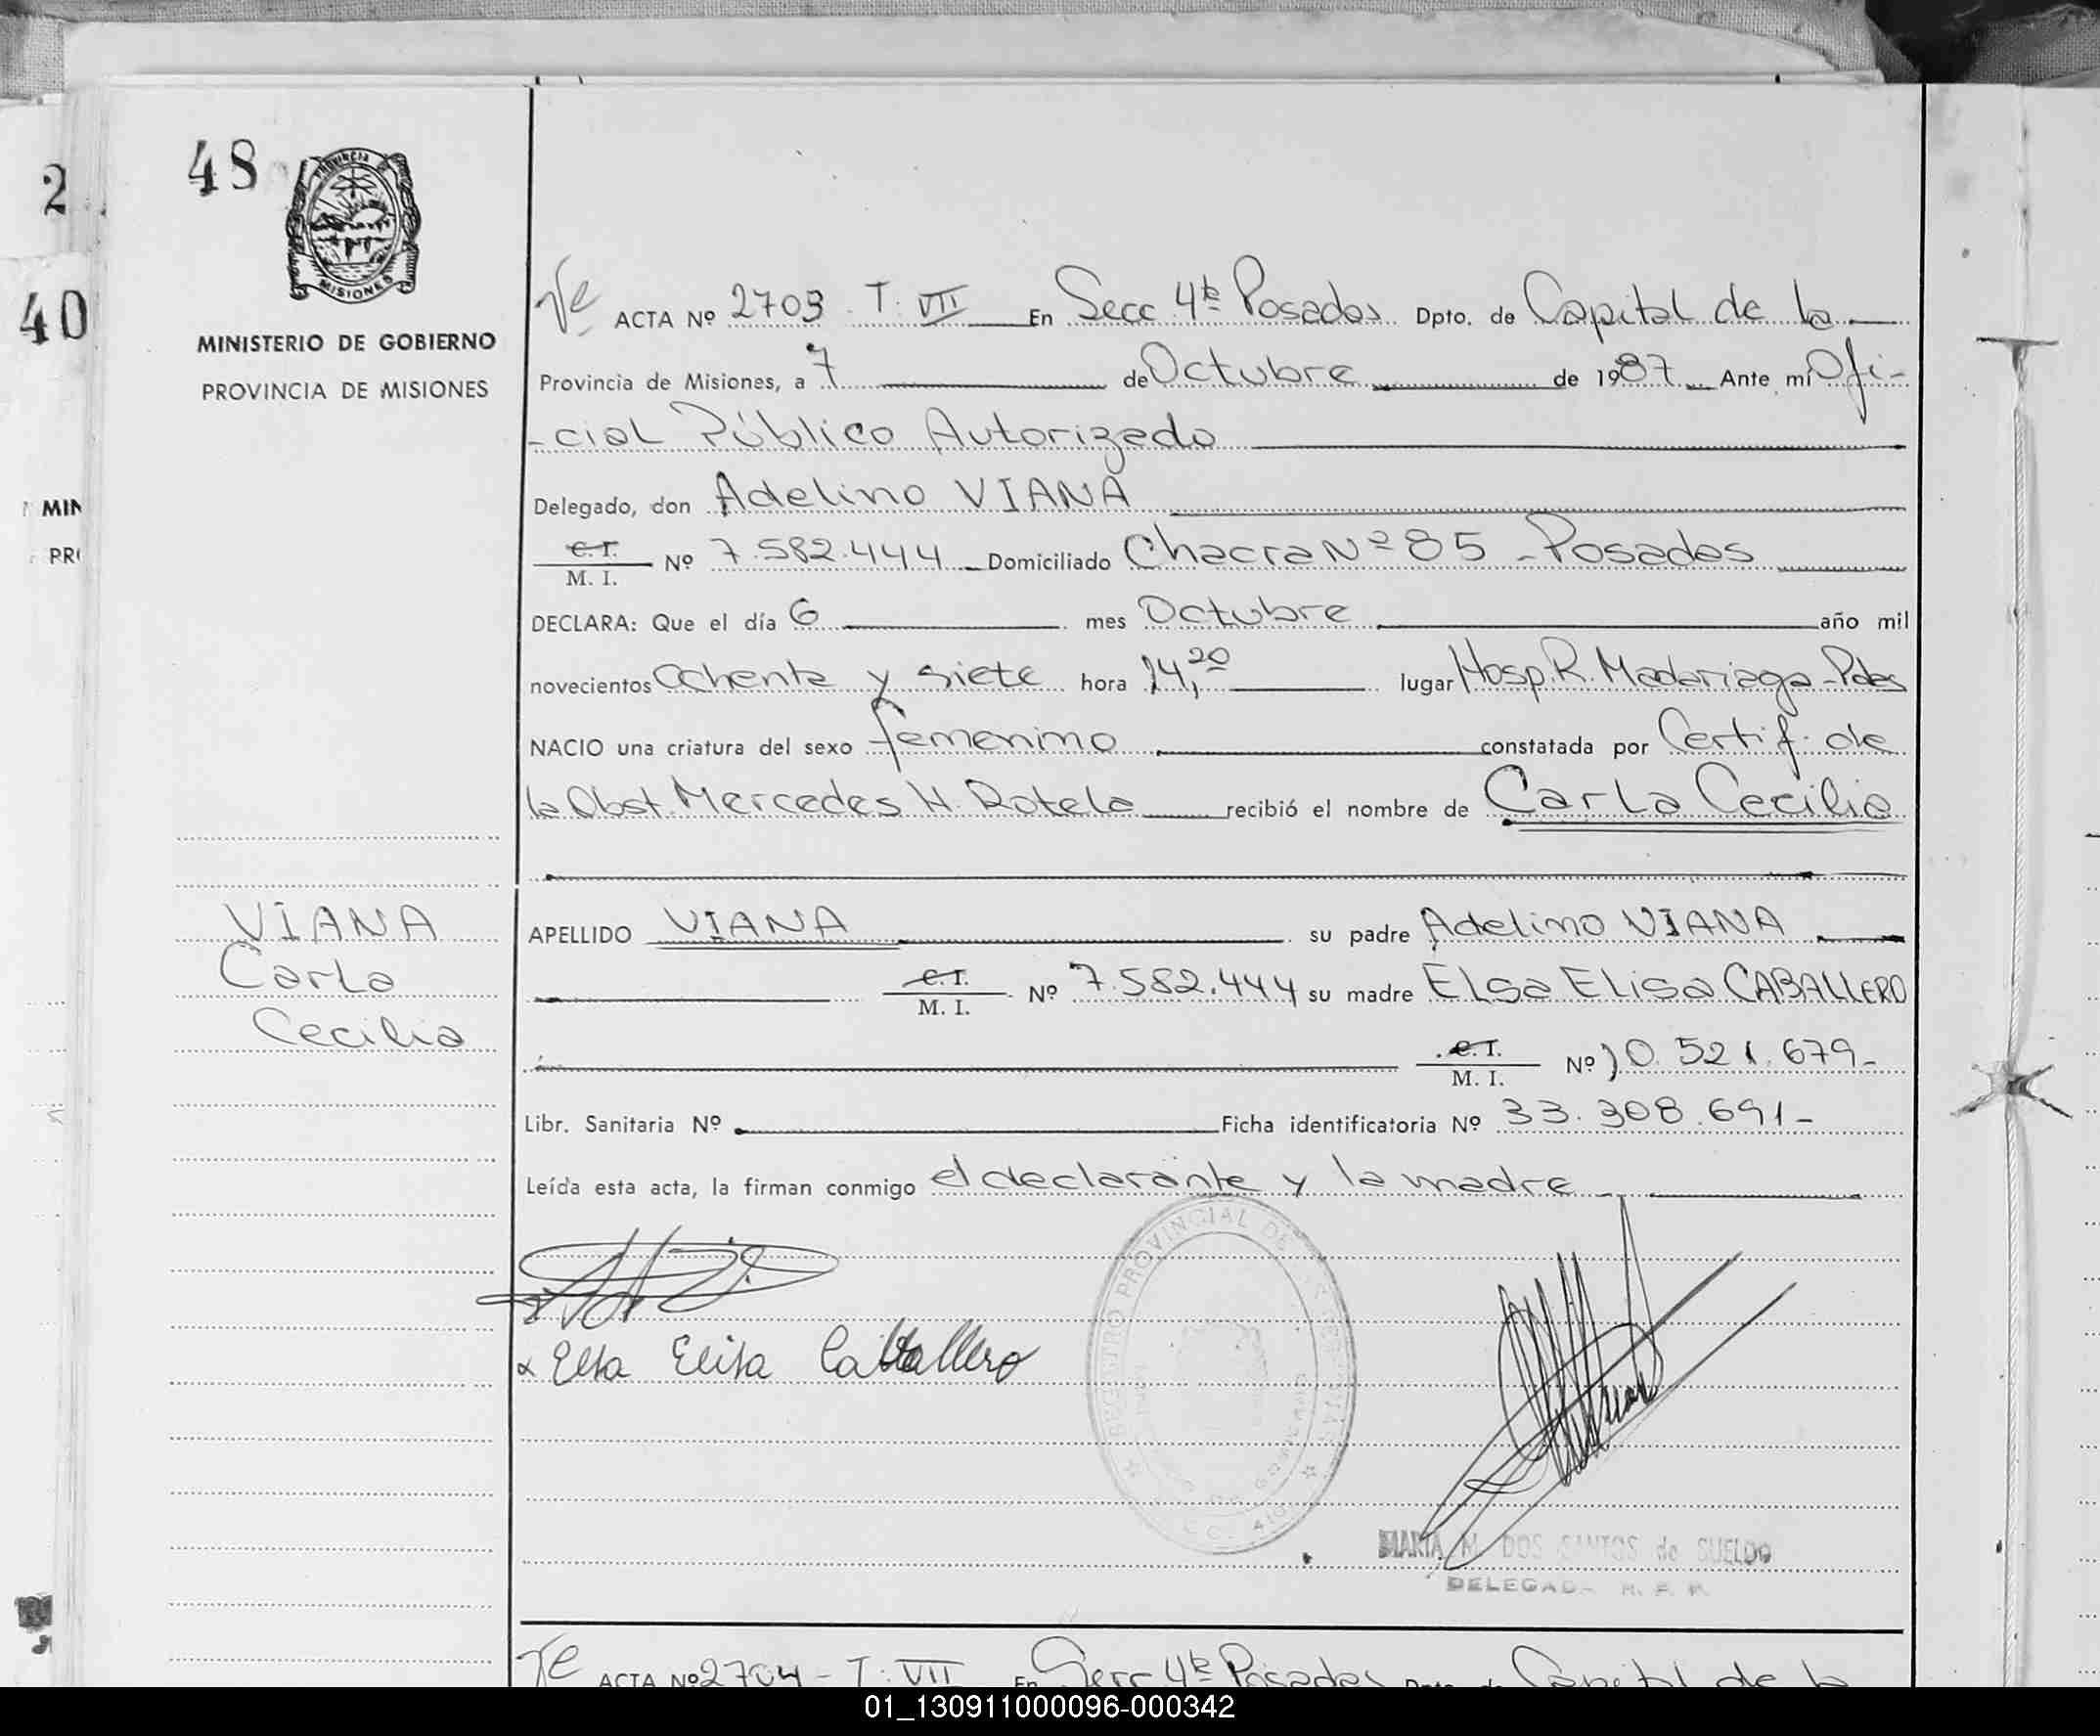 48
PROVINCIA
MISIONES
MINISTERIO DE GOBIERNO
PROVINCIA DE MISIONES
2
40
MIN
PR
ACTA Nº 2703 T. VII En Secc 4ta Posadas Dpto. de Capital de la
Provincia de Misiones, a 7 de Octubre de 1987 Ante mi Ofi-
-cial Público Autorizado
Delegado, don Adelino VIANA
C.I. M. I. Nº 7.582.444 Domiciliado Chacra Nº 85 - Posadas
DECLARA: Que el día 6 mes Octubre año mil
novecientos Ochenta y siete hora 14,20 lugar Hosp. R. Madariaga - Pdas
NACIO una criatura del sexo femenino constatada por Certif. de
la Obst. Mercedes H. Rotela recibió el nombre de Carla Cecilia
VIANA
Carla
Cecilia
APELLIDO VIANA su padre Adelino VIANA
C.I. M. I. Nº 7.582.444 su madre Elsa Elisa CABALLERO
C.I. M. I. Nº 10.521.679-
Libr. Sanitaria Nº Ficha identificatoria Nº 33.308.691-
Leída esta acta, la firman conmigo el declarante y la madre
Elsa Elisa Caballero
REGISTRO PROVINCIAL DE
MARIA M. DOS SANTOS de SUELDO
DELEGADA R. P. P.
ACTA Nº 2704 - T. VII En Secc 4ta Posadas Dpto. de Capital de la
01_130911000096-000342